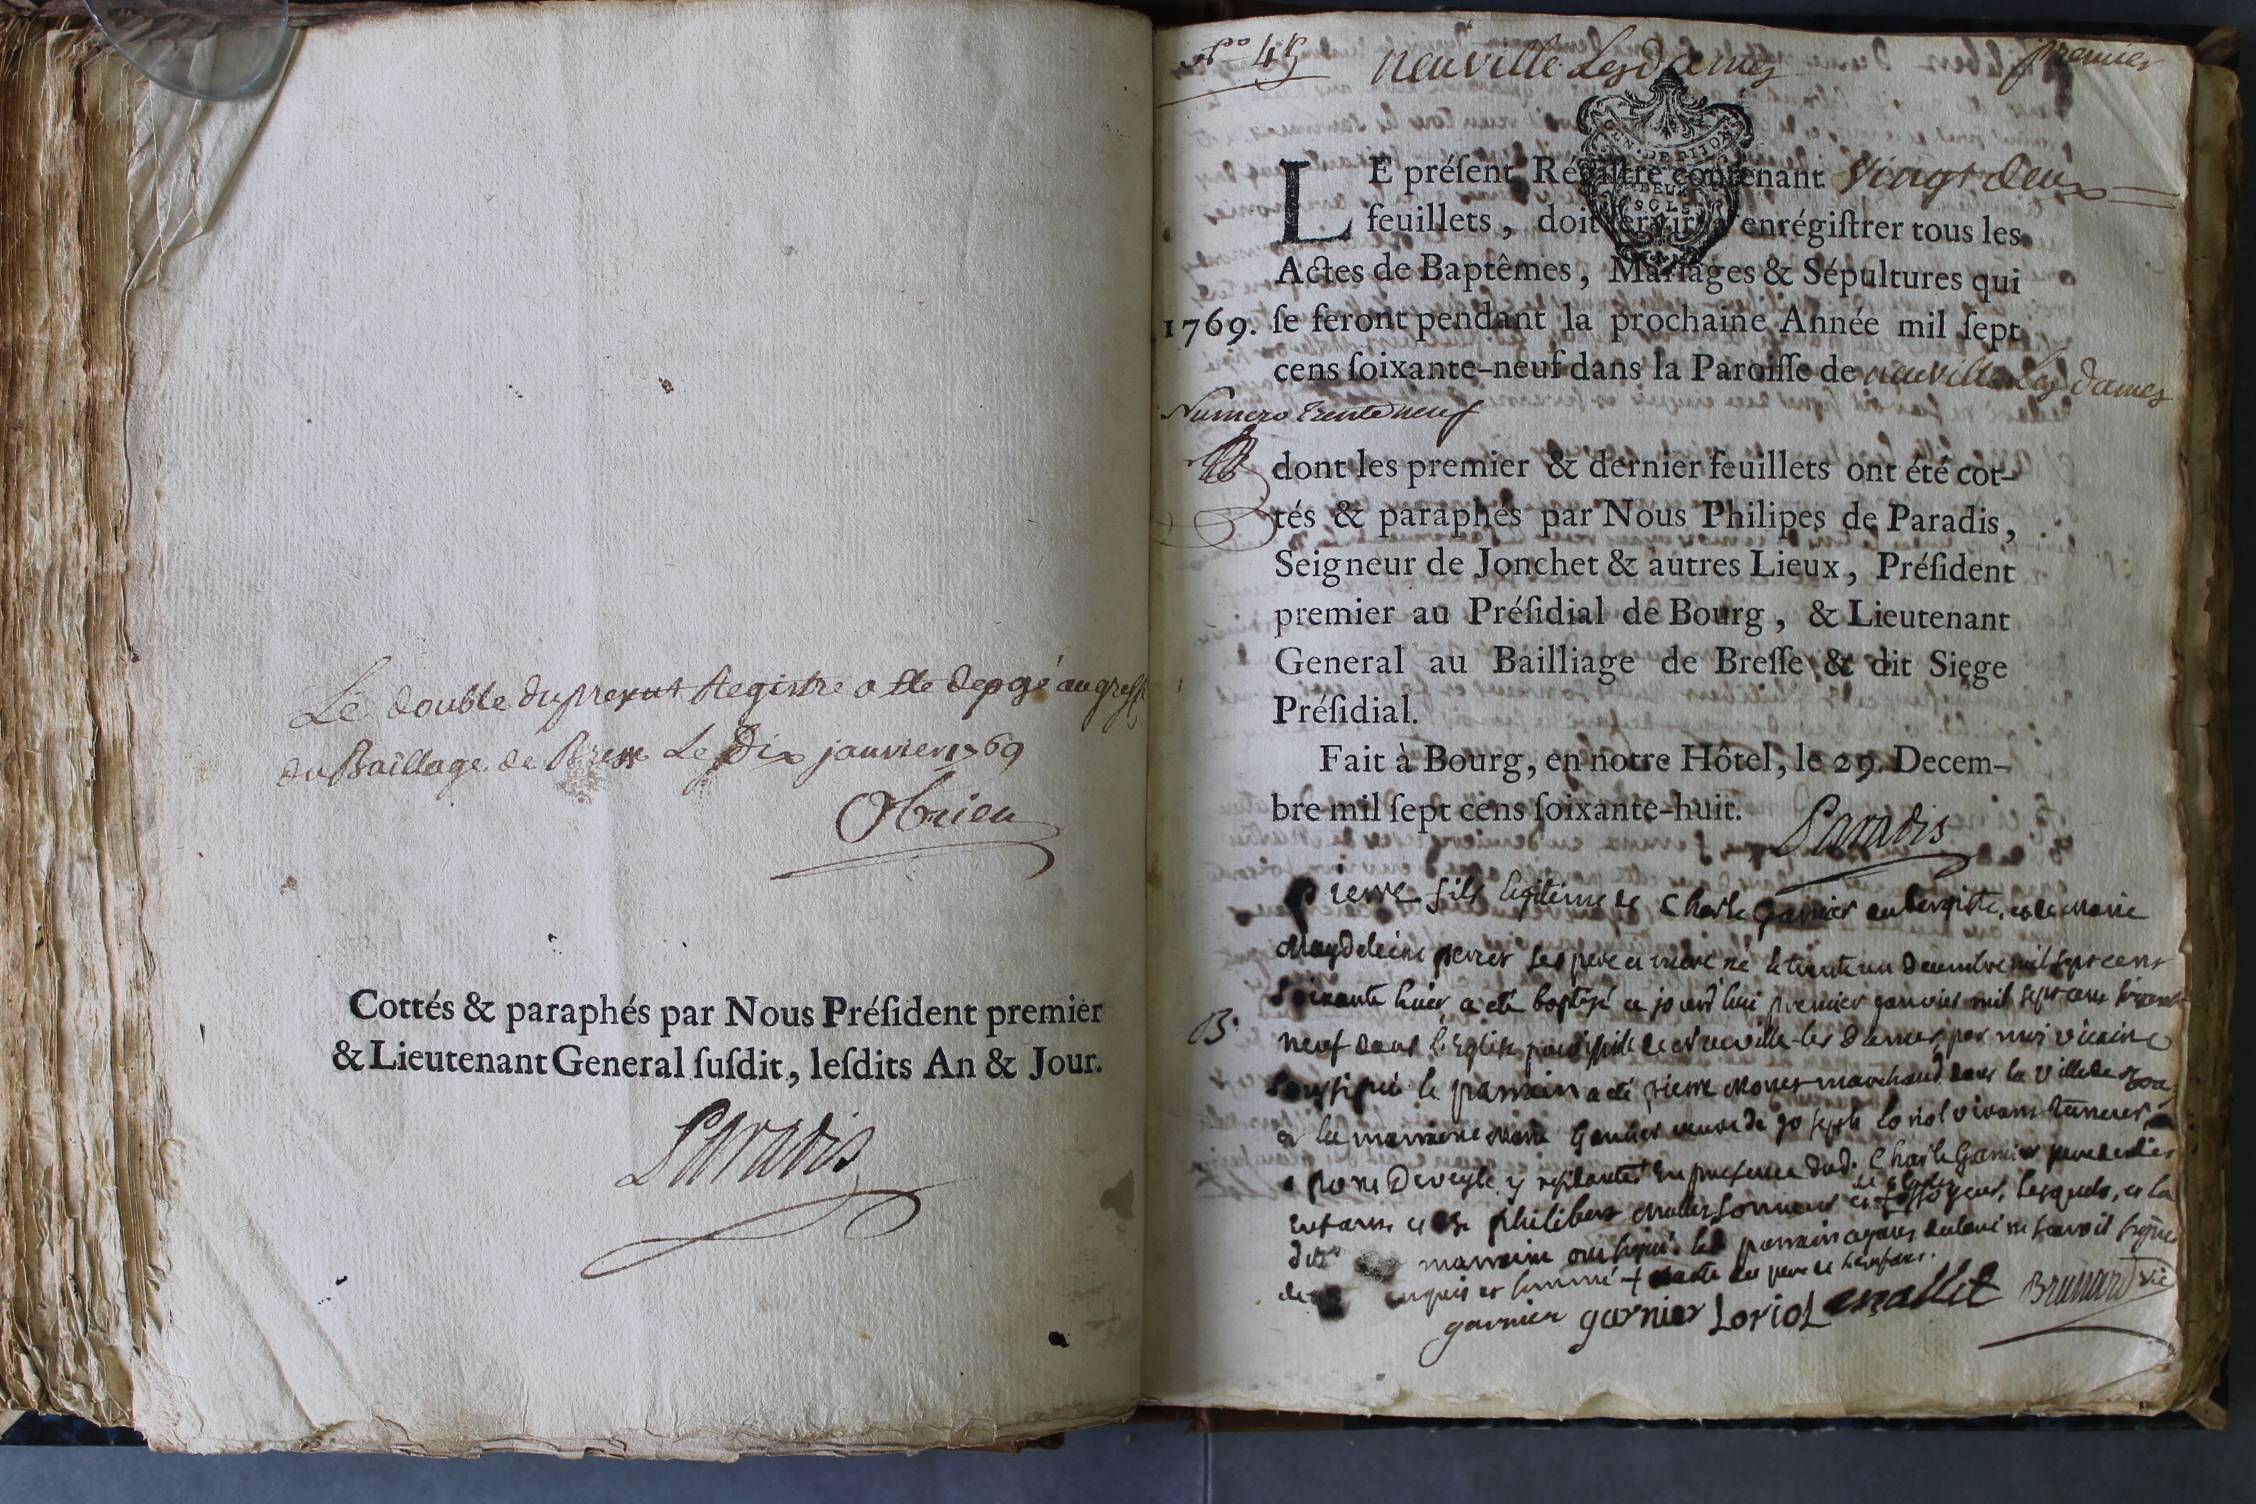 Le double du present Registre a ete deposé au greffe
du Baillage de Bresse Le Dix janvier 1769
Obrien
Cottés & paraphés par Nous Préſident premier
& Lieutenant General ſuſdit, leſdits An & Jour.
Paradis
neuville Les Dames
premier
GEN · DE DIJON
SOLS
LE préſent Régiſtre contenant vingt deux
feuillets, doit ſervir à enrégiſtrer tous les
Actes de Baptêmes, Mariages & Sépultures qui
1769. ſe feront pendant la prochaine Année mil ſept
cens ſoixante-neuf dans la Paroiſſe de neuville Les dames
Numero trente neuf
dont les premier & dernier feuillets ont été cot-
tés & paraphés par Nous Philipes de Paradis,
Seigneur de Jonchet & autres Lieux, Préſident
premier au Préſidial de Bourg, & Lieutenant
General au Bailliage de Breſſe & dit Siege
Préſidial.
Fait à Bourg, en notre Hôtel, le 29. Decem-
bre mil ſept cens ſoixante-huit.
Paradis
Pierre fils legitime de Charle Garnier aubergiste, et de Marie
Magdeleine perrer ses pere et mere né le trente un decembre mil sept cens
soixante huit, a eté baptisé ce jourd'hui premier janvier mil sept cens soixante
B. neuf dans l'Eglise paroissiale de Neuville-les Dames, par moi vicaire
soussigné le parrain a eté pierre Monet marchand dans la ville de
et la marraine Garnier veuve de joseph Loriol vivant tanneur
a pont Deveyle y residante En presence dud. Charle Garnier pere de
enfant et de philibert Mallet sonneur et fossoyeur, lesquels, et la
marraine ont signé le parrain ayant declaré ne savoir signer
de enquis et sommé
garnier garnier Loriol Mallet Brunard vic